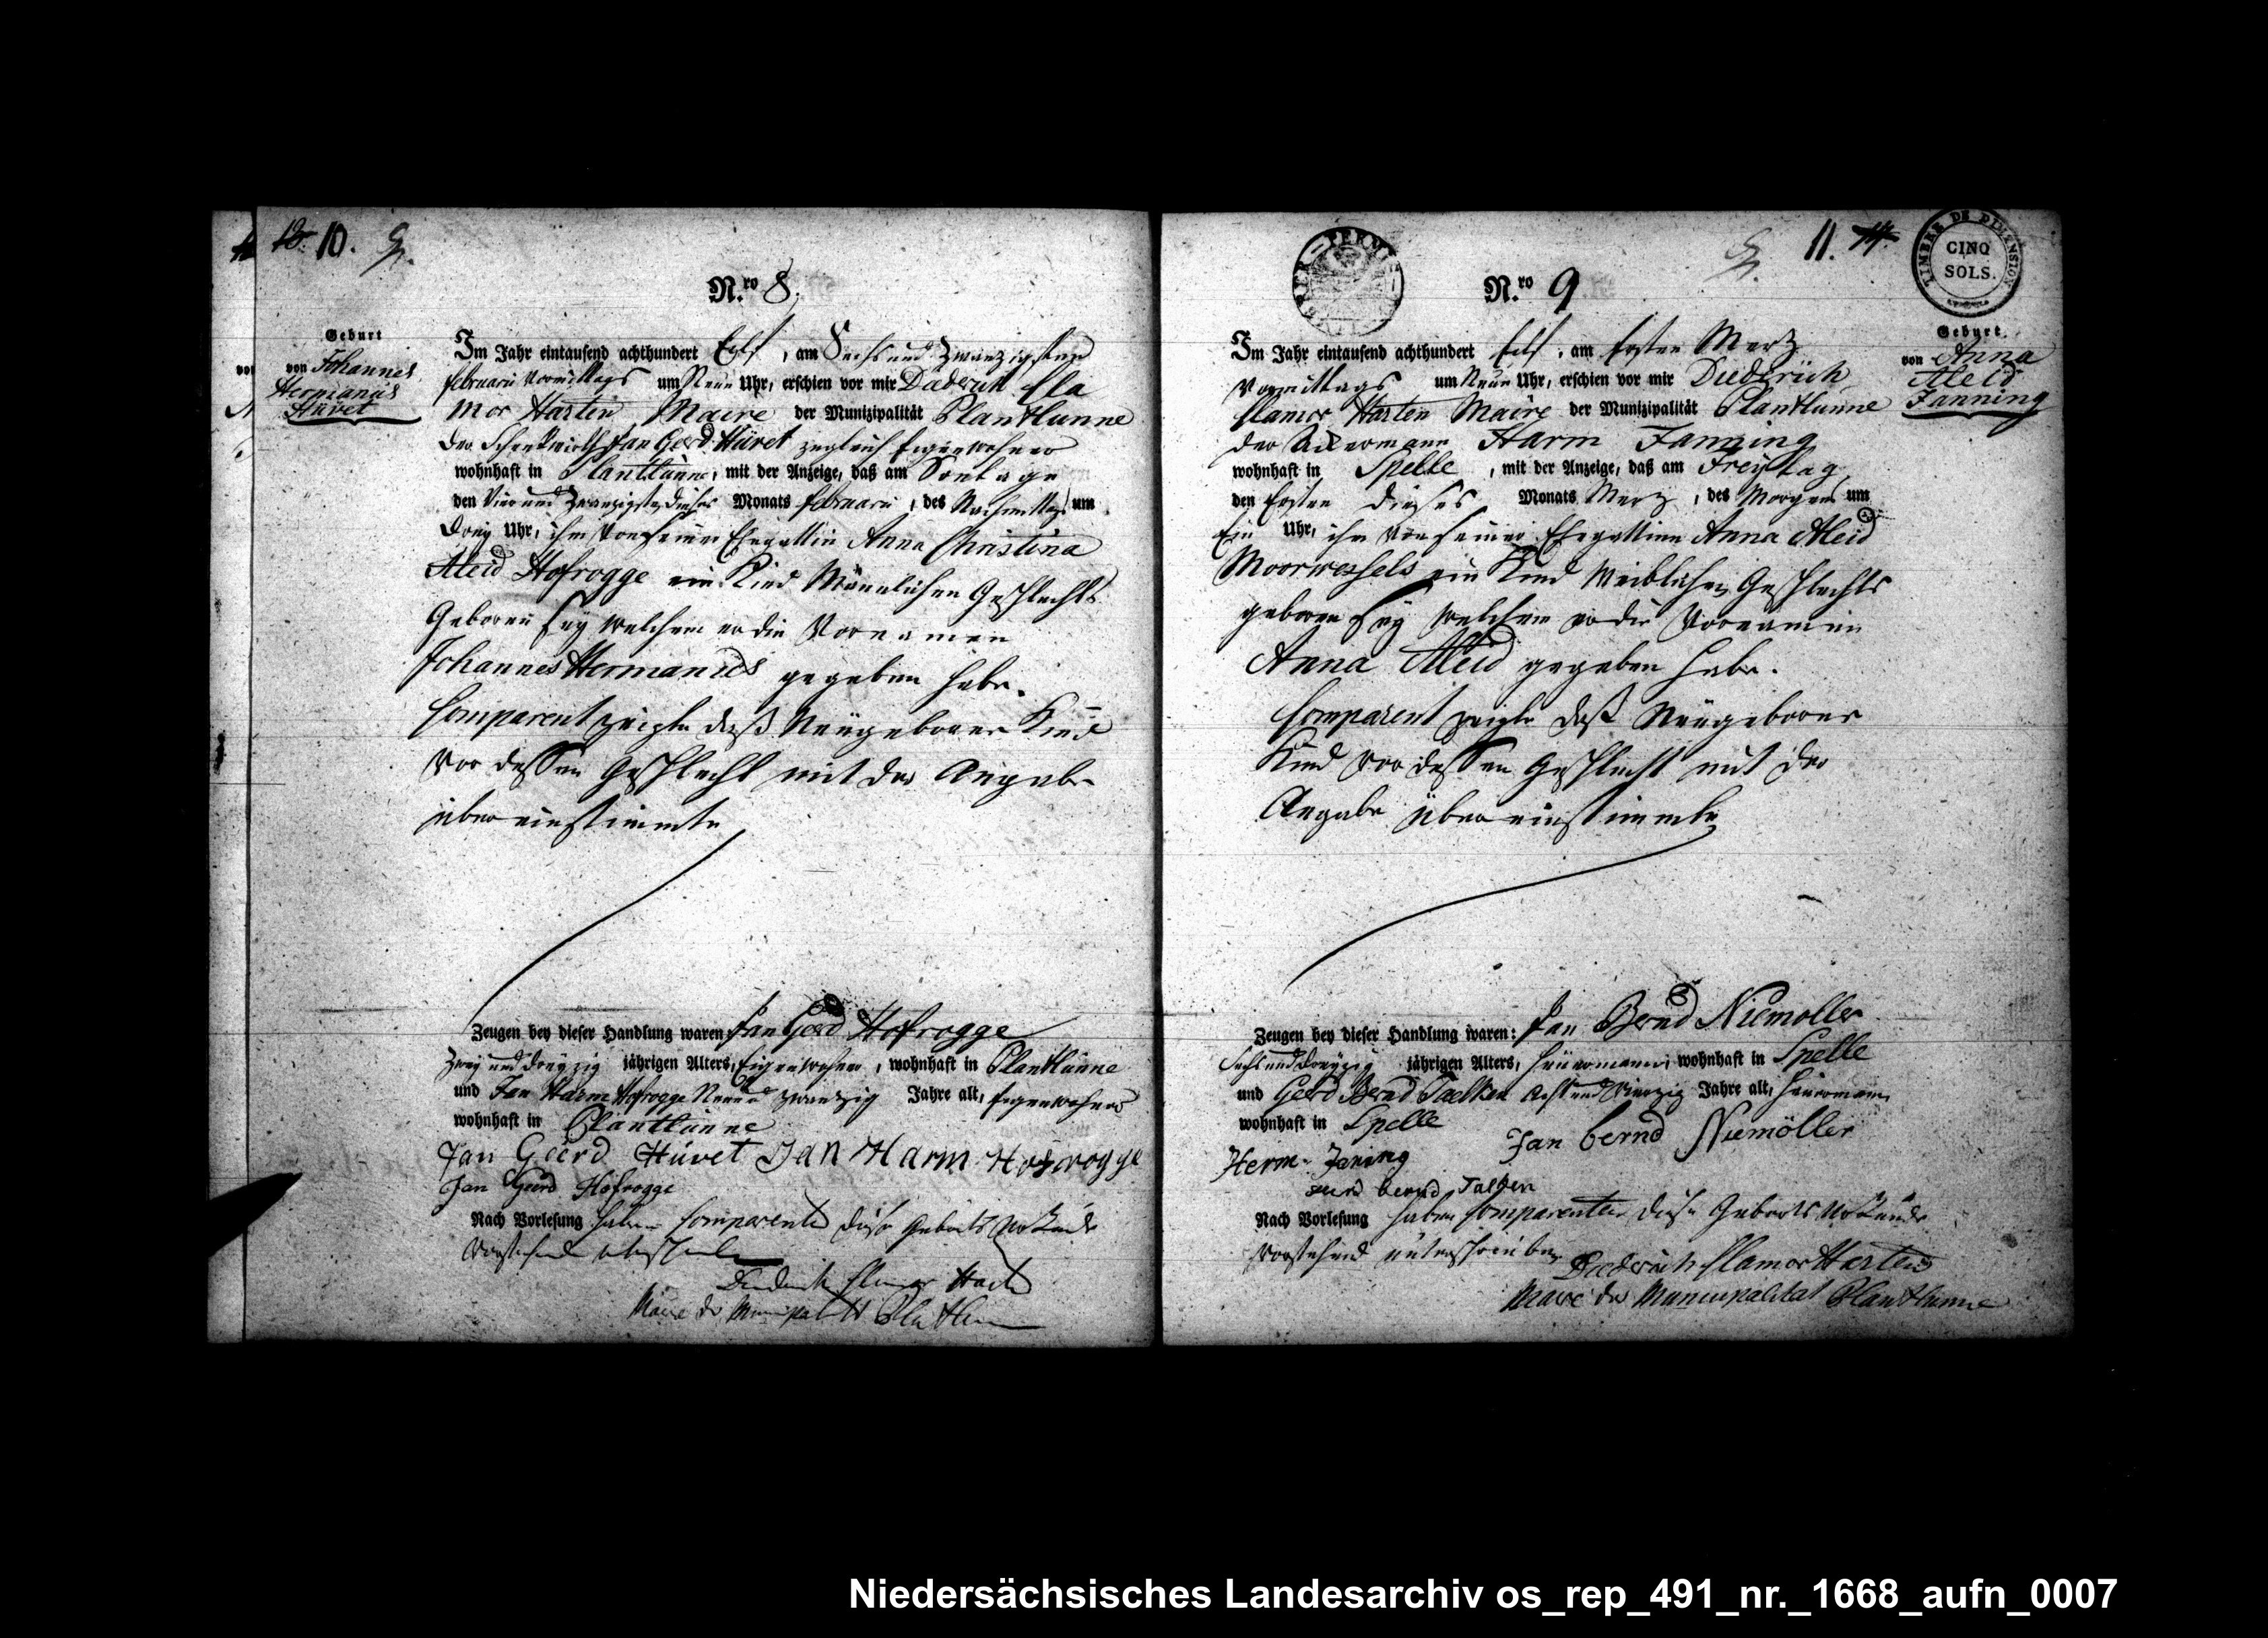 10.
N.ro 8.
Geburt
von Johannes
Hermanus
Hüvet
Im Jahr eintausend achthundert Eilf, am Sechs und Zwanzigsten
februarii Vormittags um Neun Uhr, erschien vor mir Diederich Cla
mor Harten Maire der Munizipalität Plantlünne
der Schenkwirth Jan Gerd Hüvet zugleich Eigenwohner
wohnhaft in Plantlünne, mit der Anzeige, daß am Sontage
den Vier und Zwanzigsten dieses Monats februarii, des Nachmittags um
Drey Uhr, ihm von seiner Ehegattin Anna Christina
Aleid Hofrogge ein Kind Männlichen Geschlechts
Geboren sey welchem er die Vornamen
Johannes Hermanus gegeben habe.
Comparent zeigte daß Neügeborene Kind
vor dessen Geschlecht mit der Angabe
übereinstimmte
Zeugen bey dieser Handlung waren Jan Gerd Hofrogge
Zwey und dreyzig jährigen Alters, Eigenwohner, wohnhaft in Plantlünne
und Jan Harm Hofrogge Neun und zwanzig Jahre alt, Eigenwohner
wohnhaft in Plantlünne
Jan Geerd Hüvet Jan Harm Hofrogge
Jan Gerd Hofrogge
Nach Vorlesung haben Comparenten diese Geburts Urkunde
vorstehend
Diederich Clamor Harten
Maire der Municipalität Plantlünne
11.
TIMBRE DE DIMENSION
CINQ
SOLS.
N.ro 9
Geburt
von Anna
Aleid
Janning
Im Jahr eintausend achthundert Eilf, am Ersten Merz
Vormittags um Neun Uhr, erschien vor mir Diederich
Clamor Harten Maire der Munizipalität Plantlünne
der Ackermann Harm Janning
wohnhaft in Spelle, mit der Anzeige, daß am Freytag
den Ersten dieses Monats Merz, des Morgens um
Ein Uhr, ihm von seiner Ehegattinn Anna Aleid
Moorwessels ein Kind Weiblichen Geschlechts
geboren sey welchem er die Vornamen
Anna Aleid gegeben habe.
Comparent zeigte daß Neügeborene
Kind vor dessen Geschlecht mit der
Angabe übereinstimmte
Zeugen bey dieser Handlung waren: Jan Bernd Niemoller
Sechs und dreyzig jährigen Alters, Heüermann, wohnhaft in Spelle
und Gerd Bernd Taelken Acht und Vierzig Jahre alt, Heüermann
wohnhaft in Spelle
Jan bernd Niemöller
Herm Janing
bernd Talken
Nach Vorlesung haben Comparenten diese Geburts Urkunde
vorstehend unterschrieben
Diederich Clamor Harten
Maire der Municipalität Plantlünne
Niedersächsisches Landesarchiv os_rep_491_nr._1668_aufn_0007